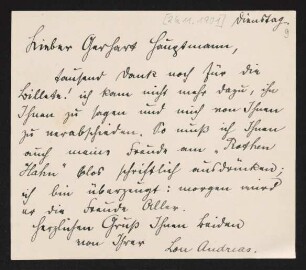 Dienstag.
Lieber Gerhart Hauptmann,
tausend Dank noch für die
Billete! ich kam nicht mehr dazu, ihn
Ihnen zu sagen und mich von Ihnen
zu verabschieden. So muß ich Ihnen
auch meine Freude am „Rothen
Hahn" blos schriftlich ausdrücken;
ich bin überzeugt: morgen wird
er die Freude Aller.
Herzlichen Gruß Ihnen beiden
von Ihrer
Lou Andreas.